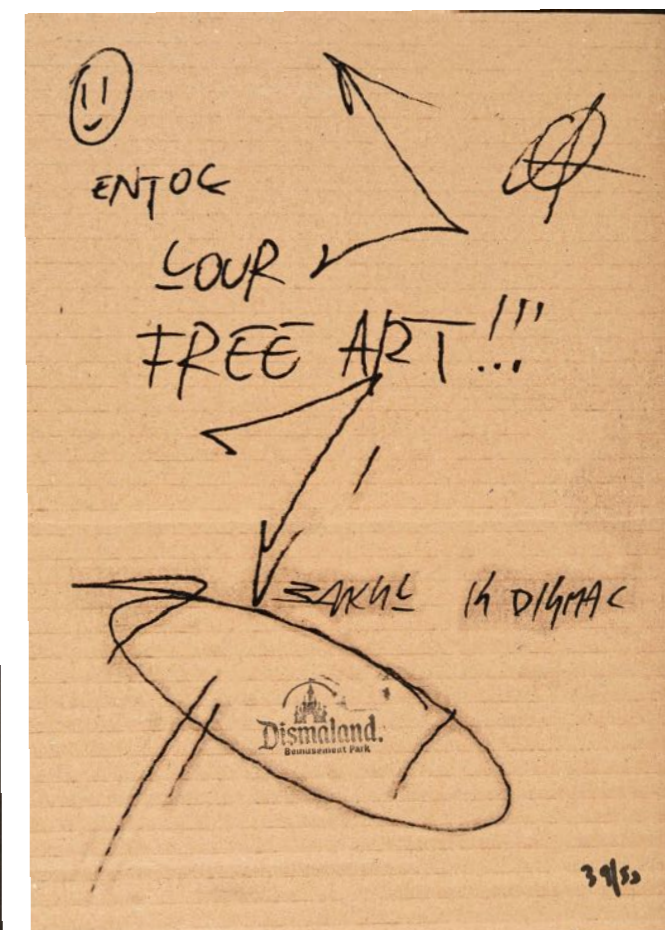 ENJOY
YOUR
FREE ART!!!
IS DISMAL
Dismaland.
Bemusement Park
/50